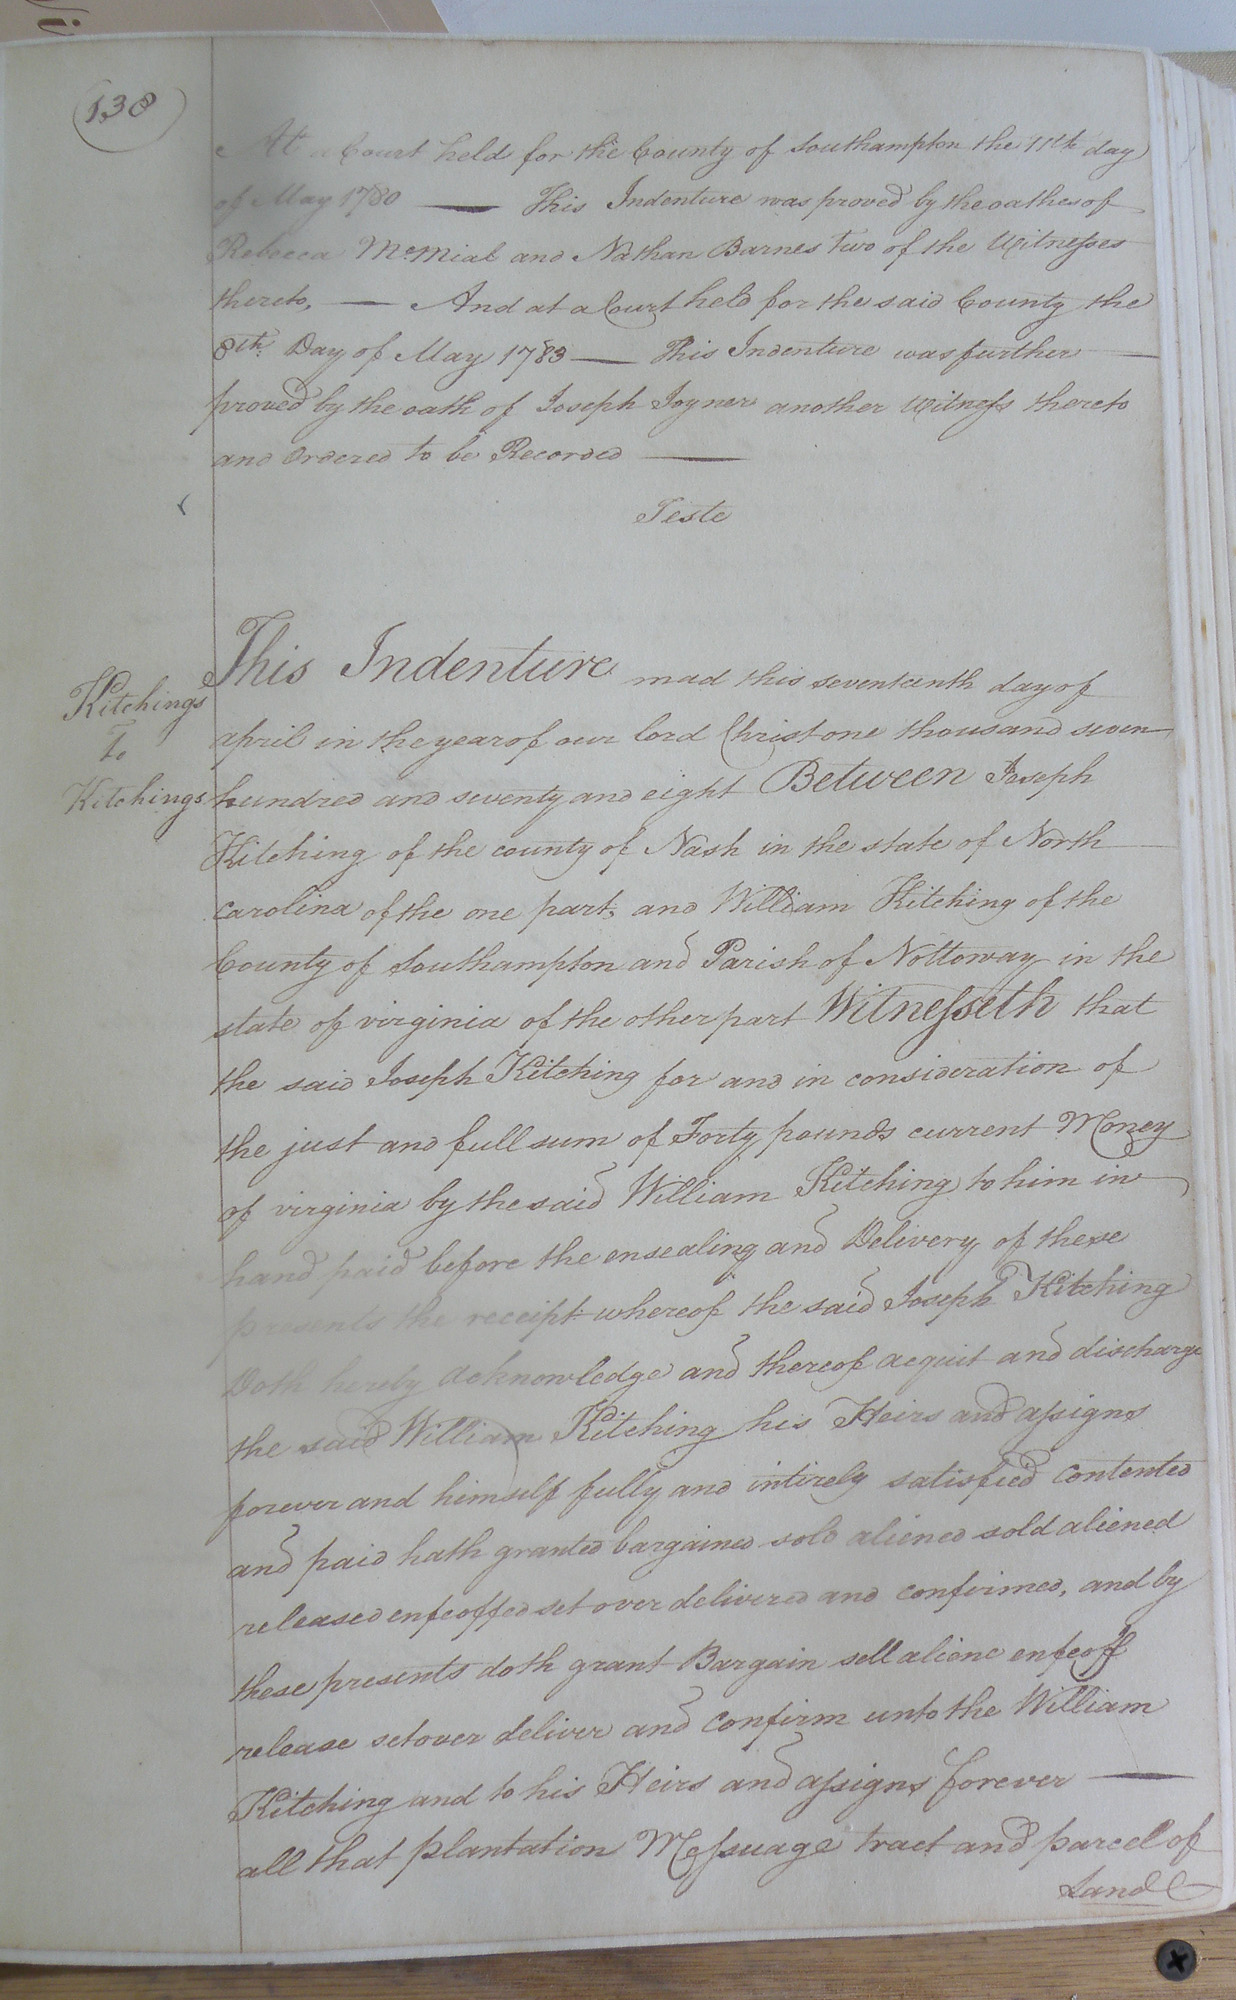 138
At a Court held for the County of Southampton the 11th day
of May 1780 — This Indenture was proved by the oathes of
Rebecca McMial and Nathan Barnes Two of the Witnesses
thereto, — And at a Court held for the said County the
8th Day of May 1783 — This Indenture was further —
proved by the oath of Joseph Joyner another Witness thereto
and Ordered to be Recorded —
Teste
Kitchings
To
Kitchings
This Indenture mad this seventeenth day of
april in the year of our lord Christ one thousand seven
hundred and seventy and eight Between Joseph
Kitching of the county of Nash in the state of North
Carolina of the one part, and William Kitching of the
County of Southampton and Parish of Nottoway in the
state of virginia of the other part Witnesseth that
the said Joseph Kitching for and in consideration of
the just and full sum of Forty pounds current Money
of virginia by the said William Kitching to him in
hand paid before the ensealing and Delivery of these
presents the receipt whereof the said Joseph Kitching
Doth hereby acknowledge and thereof acquit and discharge
the said William Kitching his Heirs and assigns
forever and himself fully and intirely satisfied contented
and paid hath granted bargained sold aliened sold aliened
released enfeoffed set over delivered and confirmed, and by
these presents doth grant Bargain sell aliene enfeoff
release set over deliver and confirm unto the William
Kitching and to his Heirs and assigns forever —
all that plantation Messuage tract and parcel of
Land